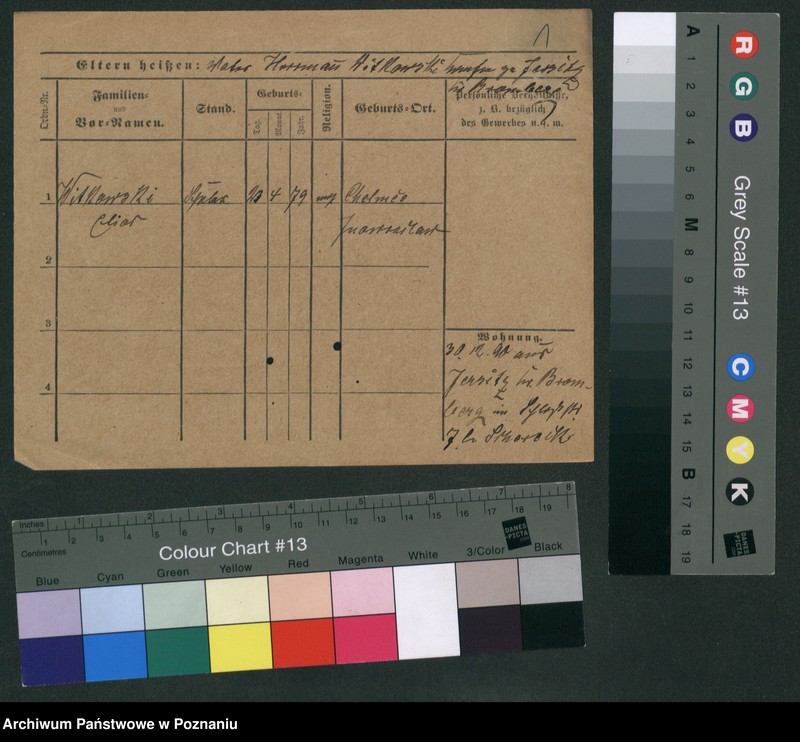 1
Eltern heißen: Vater Herrmann Witkowski
in Bromberg
Ordn.-Nr.
Familien-
und
Vor-Namen.
Stand.
Geburts-
Tag.
Monat.
Jahr.
Religion.
Geburts-Ort.
Persönliche Verhältnisse,
z. B. bezüglich
des Gewerbes u. s. w.
1 Witkowski Schüler 23 4 79 Chelmce
Elias Inowrazlaw
2
3
4
Wohnung.
30. 12. 90 aus
Jersitz Kr. Brom-
berg in
7 b.
Inches 1 2 3 4 5 6 7 8
1 2 3 4 5 6 7 8 9 10 11 12 13 14 15 16 17 18 19
Centimetres
Colour Chart #13
DANES
PICTA
.COM
Blue Cyan Green Yellow Red Magenta White 3/Color Black
A 1 2 3 4 5 6 M 8 9 10 11 12 13 14 15 B 17 18 19
R G B
Grey Scale #13
C M Y K
DANES
PICTA
.COM
Archiwum Państwowe w Poznaniu